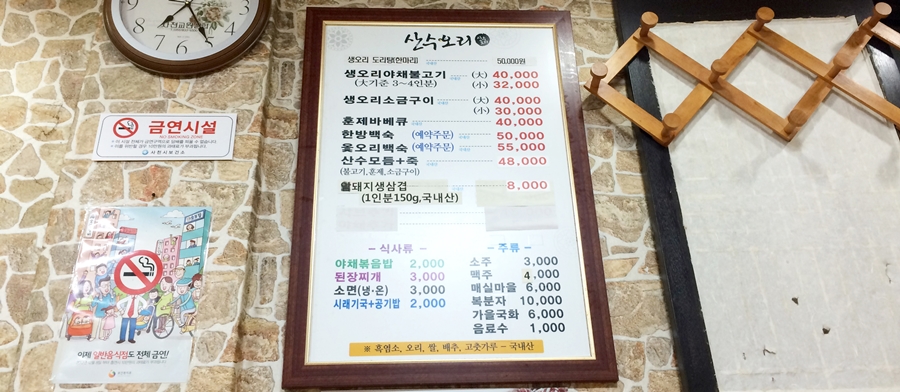 산수오리
생오리 도리탕(한마리) 50,000원
생오리야채불고기 (大) 40,000
(大기준 3~4인분) (小) 32,000
생오리소금구이 (大) 40,000
(小) 30,000
훈제바베큐 40,000
한방백숙 (예약주문) 50,000
옻오리백숙 (예약주문) 55,000
산수모듬+죽 48,000
(불고기,훈제,소금구이)
돼지생삼겹 8,000
(1인분150g,국내산)
- 식사류 -
야채볶음밥 2,000
된장찌개 3,000
소면(냉·온) 3,000
시래기국+공기밥 2,000
- 주류 -
소주 3,000
맥주 4,000
매실마을 6,000
복분자 10,000
가을국화 6,000
음료수 1,000
※ 흑염소, 오리, 쌀, 배추, 고춧가루 - 국내산
금연시설
NO SMOKING ZONE
사천시보건소
이제 일반음식점도 전체 금연!
3
4
5
6
7
8
9